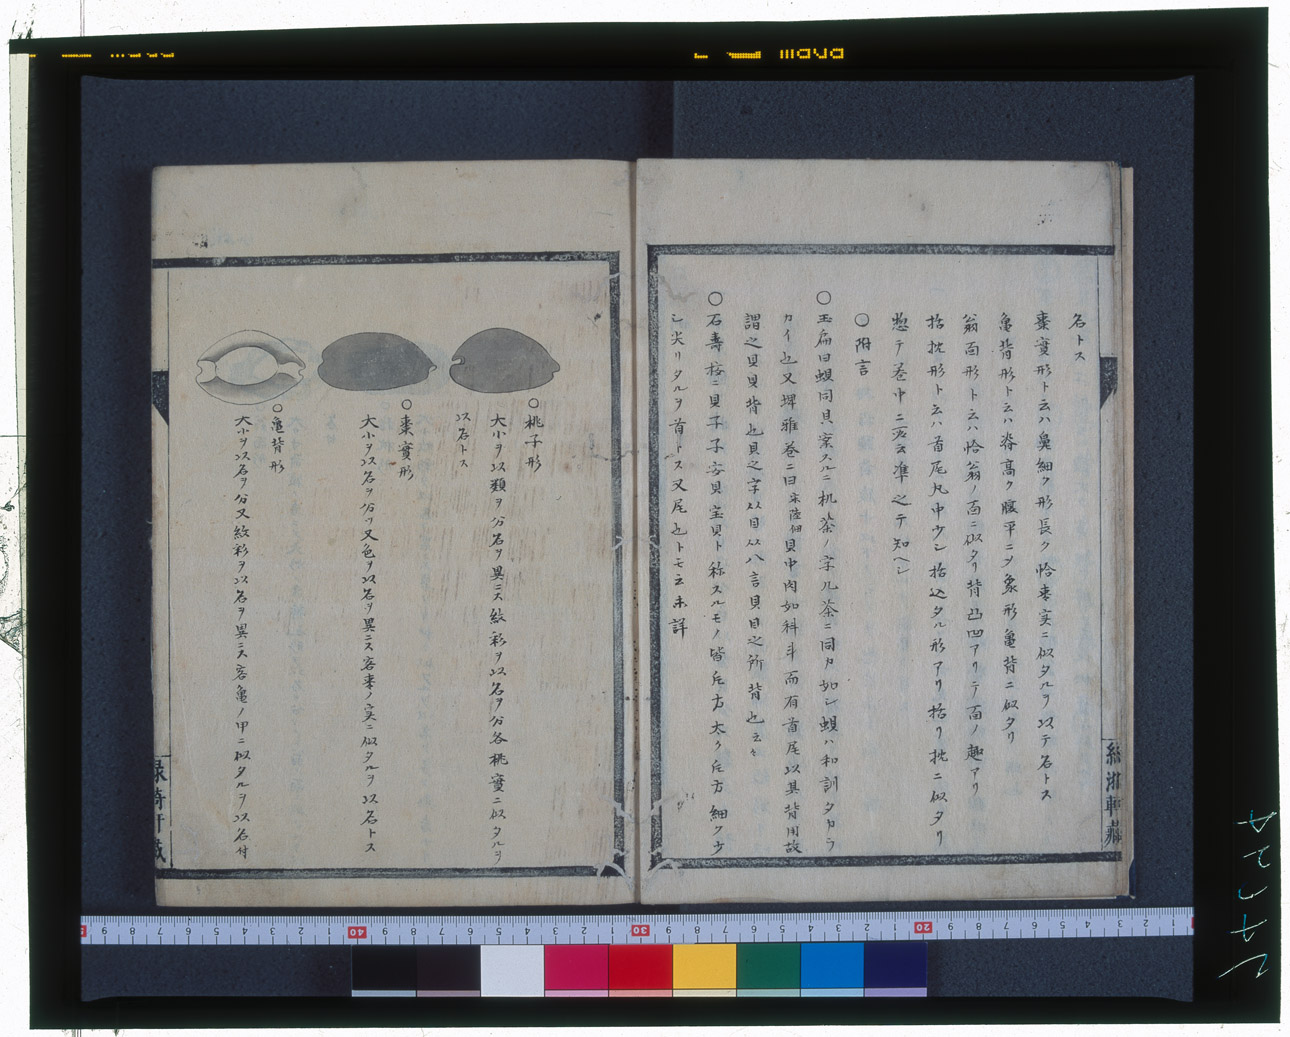 名トス
棗實形ト云ハ鼻細ク形長ク恰棗実ニ似タルヲ以テ名トス
亀背形ト云ハ脊高ク腹平ニメ象形亀背ニ似タリ
翁面形ト云ハ恰翁ノ面ニ似タリ背凸凹アリテ面ノ趣アリ
括枕形ト云ハ首尾丸中ウシ括込タル形アリ括リ枕ニ似タリ
惣テ巻中ニ云准之テ知ヘシ
○附言
○玉扁曰蛽同貝案スルニ机茶ノ字ル茶ニ同カ如シ蛽ハ和訓タカラ
カイ也又埤雅巻ニ曰宋陸佃貝中肉如科斗而有首尾以其背用故
謂之貝貝背也貝之字从目从八言貝目之所背也云々
○石壽按ニ貝子子安貝宝貝ト称スルモノ皆左方太ク左方細クウ
シ尖リタルヲ首トス又尾也トモ云未詳
○桃子形
大小ヲ以類ヲ分名ヲ異ニス紋彩ヲ以名ヲ分各桃實ニ似タルヲ
以名トス
○棗實形
大小ヲ以名ヲ分ツ又色ヲ以名ヲ異ニス客棗ノ実ニ似タルヲ以名トス
○亀背形
大小ヲ以名ヲ分又紋彩ヲ以名ヲ異ニス客亀ノ甲ニ似タルヲ以名付